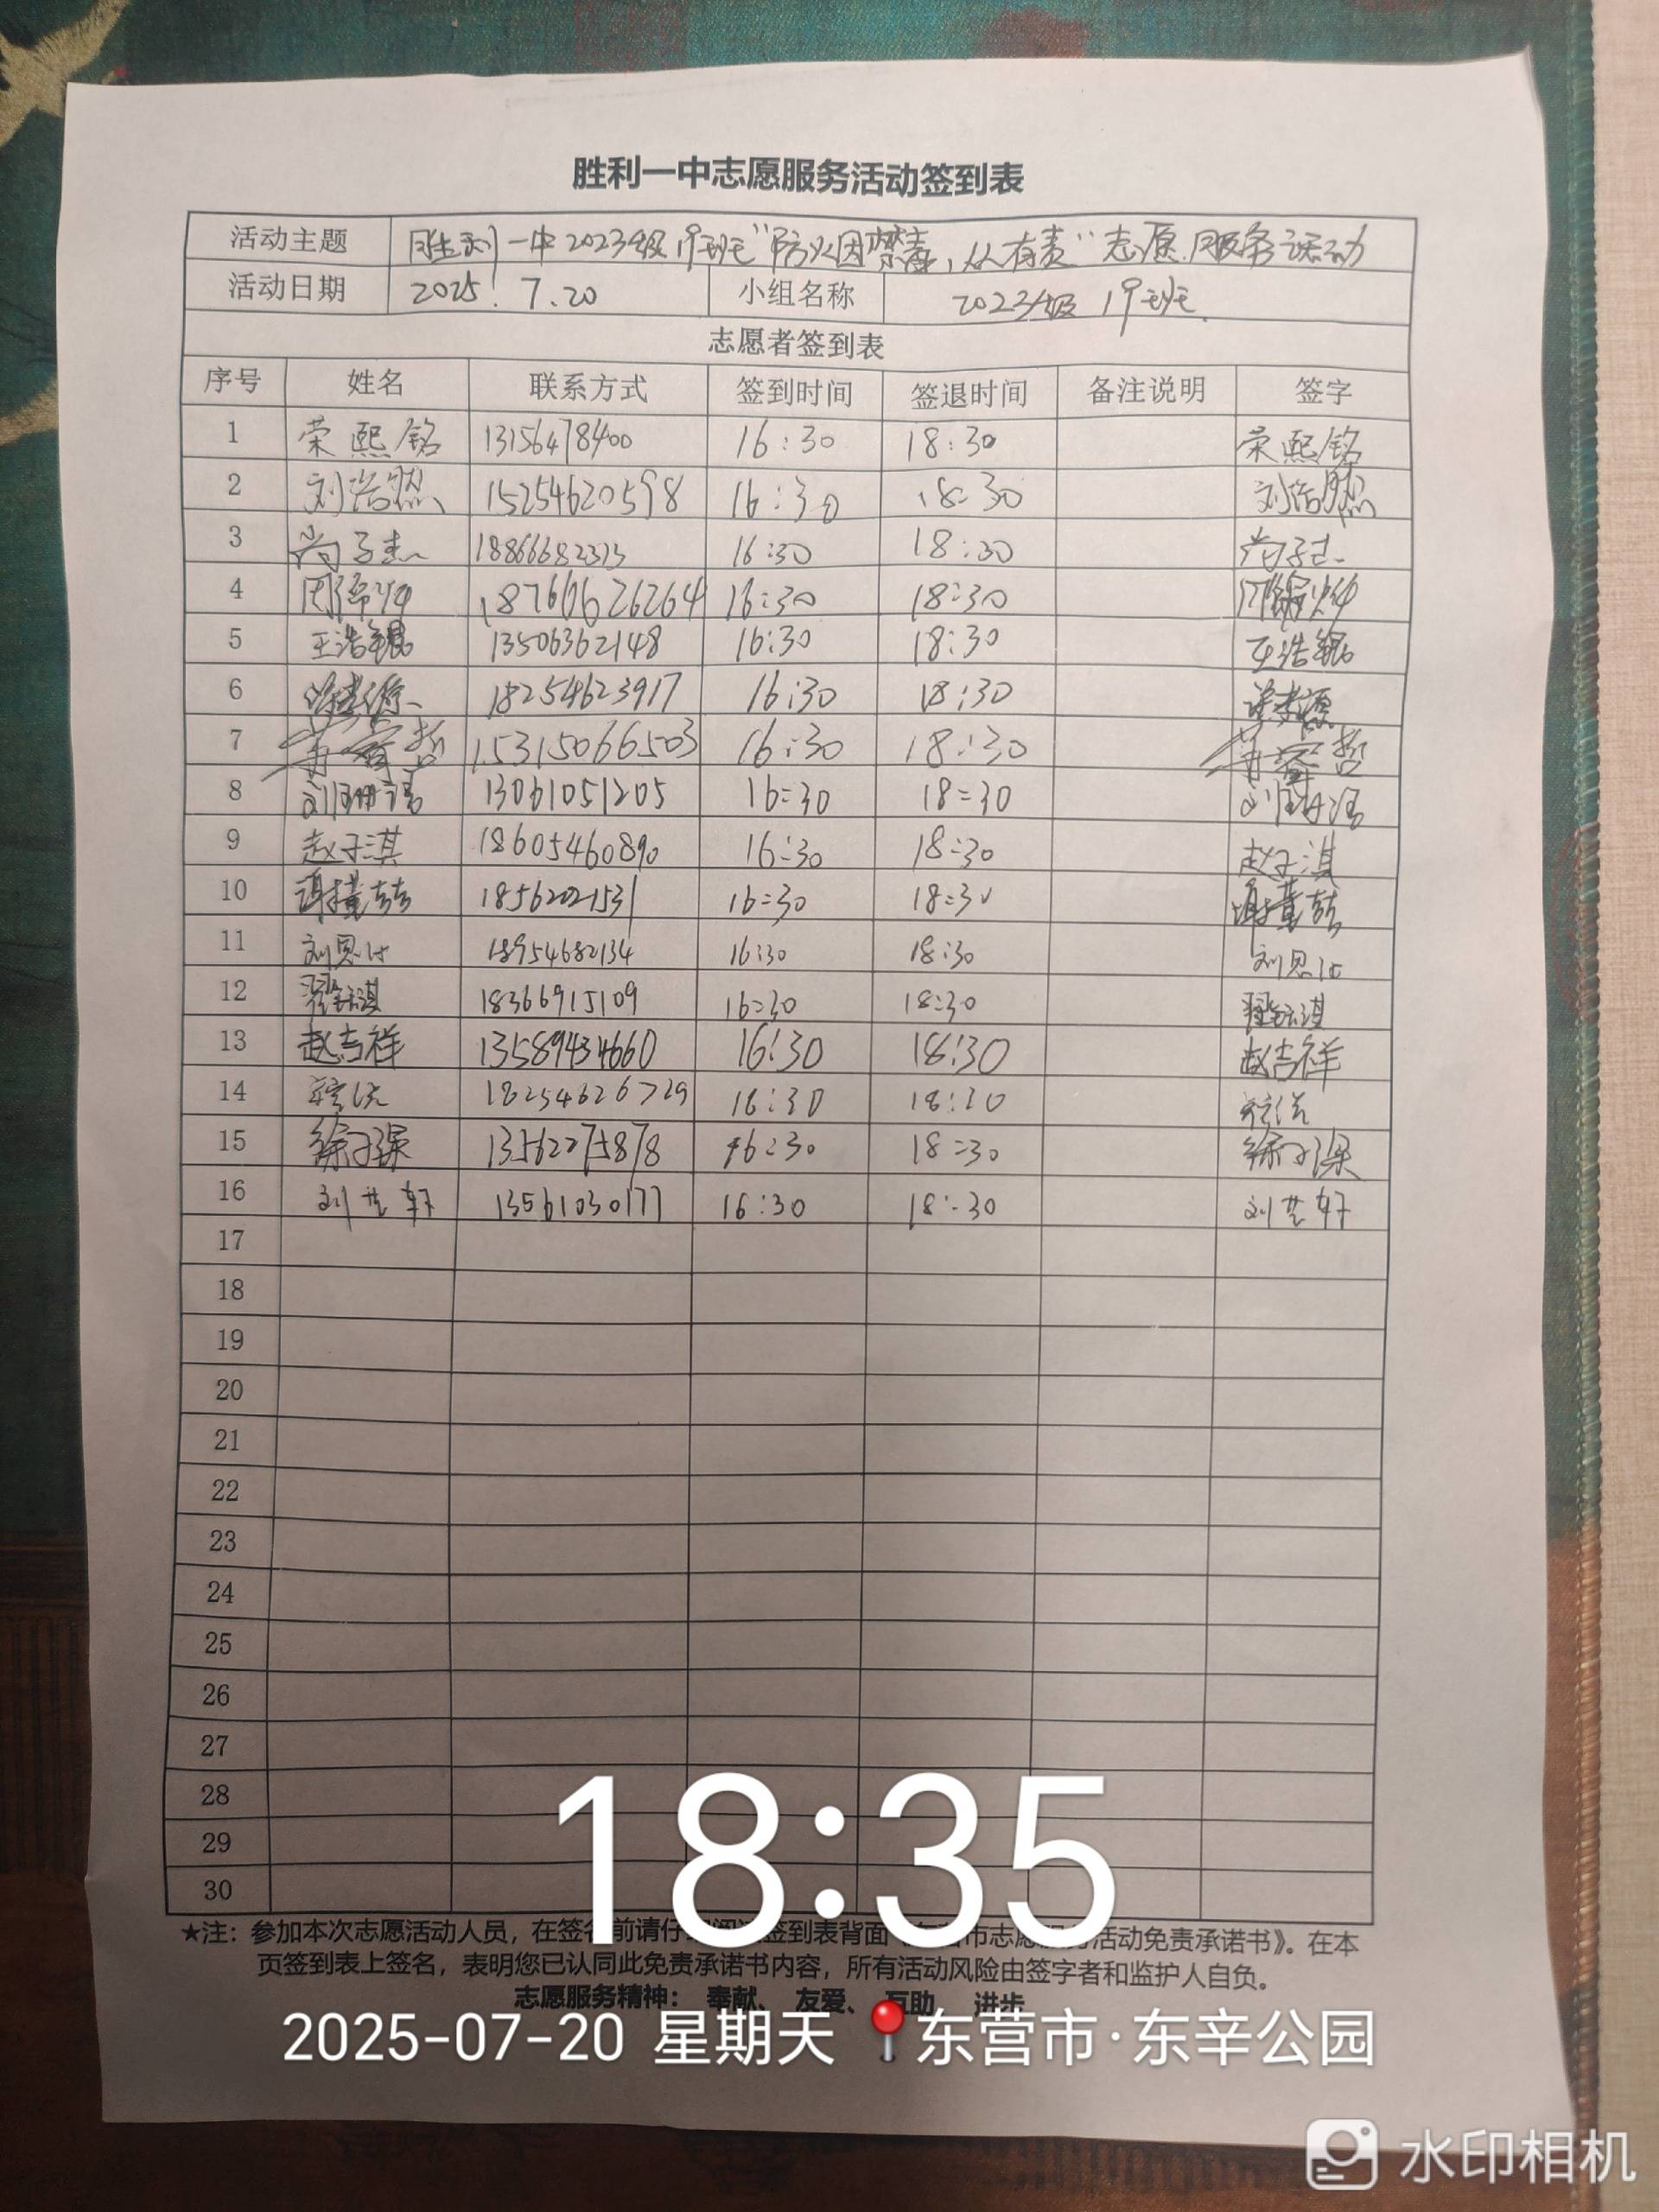 胜利一中志愿服务活动签到表
活动主题 胜利一中2023级19班"防火因禁毒,人人有责"志愿服务活动
活动日期 2025.7.20 小组名称 2023级19班
志愿者签到表
序号 姓名 联系方式 签到时间 签退时间 备注说明 签字
1 荣熙铭 13156478400 16:30 18:30 荣熙铭
2 刘浩然 15254620598 16:30 18:30 刘浩然
3 尚子杰 18866682313 16:30 18:30 尚子杰
4 18766626264 16:30 18:30
5 王浩锟 13506362148 16:30 18:30 王浩锟
6 18254623917 16:30 18:30
7 15315066503 16:30 18:30
8 13061051205 16:30 18:30
9 赵子淇 18605460890 16:30 18:30 赵子淇
10 18562021531 16:30 18:30
11 18954682134 16:30 18:30
12 18366915109 16:30 18:30
13 赵吉祥 13589434660 16:30 18:30 赵吉祥
14 18254626729 16:30 18:30
15 徐子琛 13562275878 16:30 18:30 徐子琛
16 刘芸轩 13561030177 16:30 18:30 刘芸轩
17
18
19
20
21
22
23
24
25
26
27
28
29
30
18:35
★注:参加本次志愿活动人员,在签名前请仔 签到表背面 市志愿服务活动免责承诺书》。在本
页签到表上签名,表明您已认同此免责承诺书内容,所有活动风险由签字者和监护人自负。
志愿服务精神: 奉献、 友爱、 互助、 进步
2025-07-20 星期天 东营市·东辛公园
水印相机